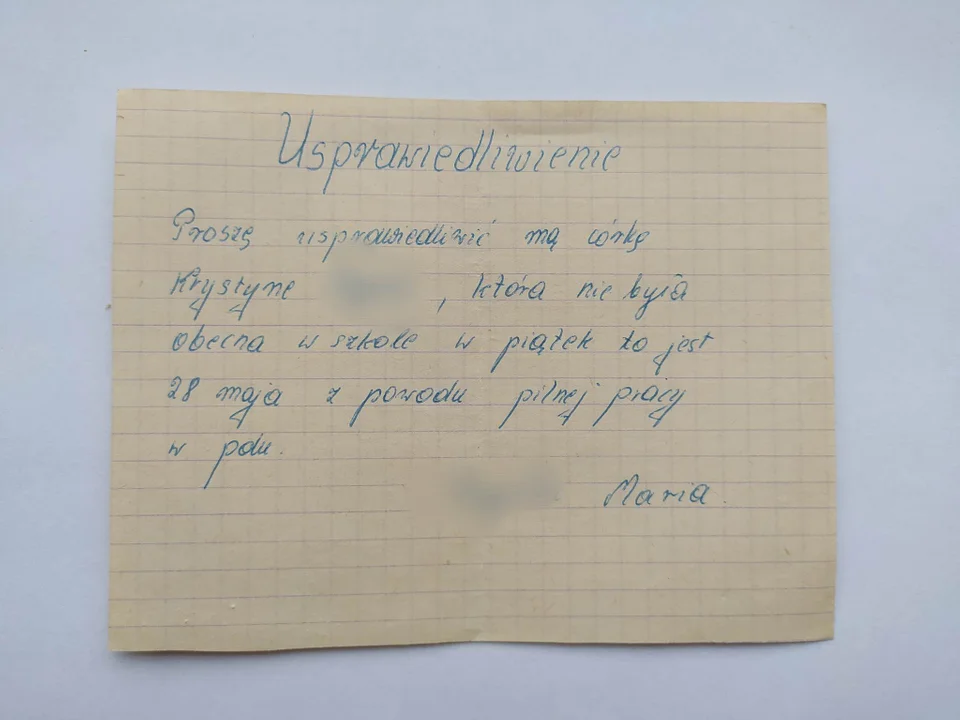 Usprawiedliwienie
Proszę usprawiedliwić mą córkę
Krystynę , która nie była
obecna w szkole w piątek to jest
28 maja z powodu pilnej pracy
w polu.
Maria.